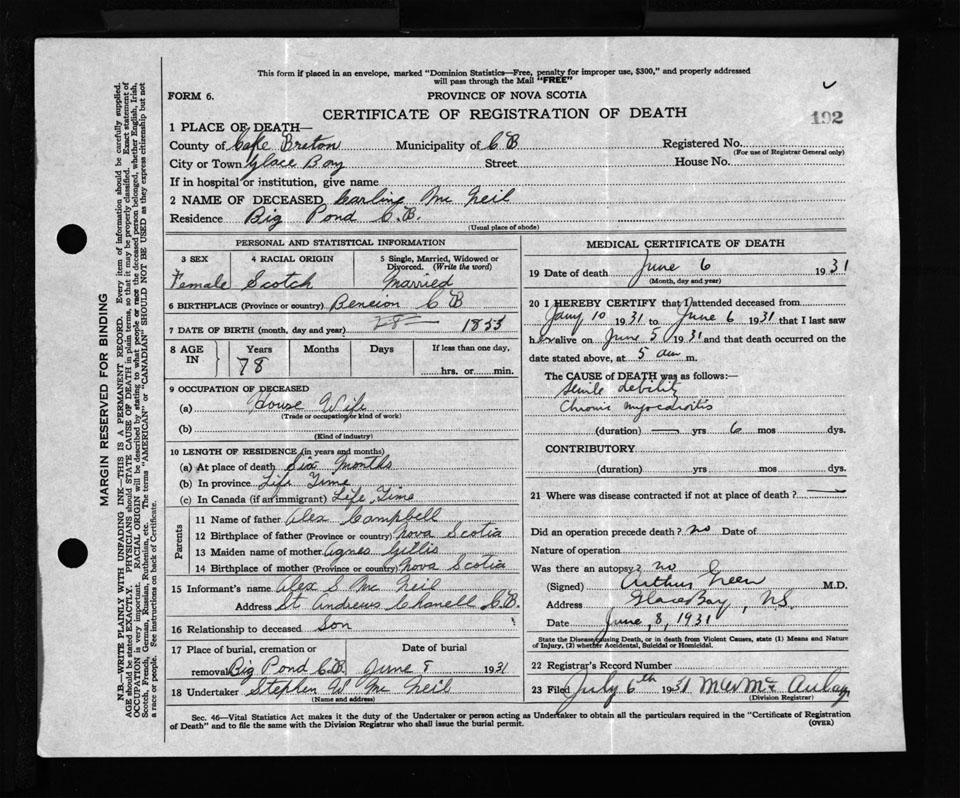 This form if placed in an envelope, marked "Dominion Statistics—Free, penalty for improper use, $300," and properly addressed
will pass through the Mail "FREE"
FORM 6. PROVINCE OF NOVA SCOTIA
CERTIFICATE OF REGISTRATION OF DEATH
192
1 PLACE OF DEATH—
County of Cape Breton Municipality of C B Registered No.
(For use of Registrar General only)
City or Town Glace Bay Street House No.
If in hospital or institution, give name
2 NAME OF DECEASED Carline Mc Neil
Residence Big Pond C.B.
(Usual place of abode)
PERSONAL AND STATISTICAL INFORMATION
3 SEX 4 RACIAL ORIGIN 5 Single, Married, Widowed or
Divorced. (Write the word)
Female Scotch Married
6 BIRTHPLACE (Province or country) Beneion C B
7 DATE OF BIRTH (month, day and year) 28 1853
8 AGE IN Years Months Days If less than one day,
78 hrs. or min.
9 OCCUPATION OF DECEASED
(a) House Wife
(Trade or occupation or kind of work)
(b)
(Kind of industry)
10 LENGTH OF RESIDENCE (in years and months)
(a) At place of death Six Months
(b) In province Life Time
(c) In Canada (if an immigrant) Life Time
Parents
11 Name of father Alex Campbell
12 Birthplace of father (Province or country) Nova Scotia
13 Maiden name of mother Agnes Gillis
14 Birthplace of mother (Province or country) Nova Scotia
15 Informant's name Alex S Mc Neil
Address St Andrews Chanell C.B.
16 Relationship to deceased Son
17 Place of burial, cremation or Date of burial
removal Big Pond C.B. June 8 1931
18 Undertaker Stephen W Mc Neil
(Name and address)
MEDICAL CERTIFICATE OF DEATH
19 Date of death June 6 1931
(Month, day and year)
20 I HEREBY CERTIFY that I attended deceased from
Jany 10 1931 to June 6 1931 that I last saw
her alive on June 5 1931 and that death occurred on the
date stated above, at 5 am m.
The CAUSE of DEATH was as follows:
Senile debility
Chronic myocarditis
(duration) — yrs 6 mos dys.
CONTRIBUTORY
(duration) yrs mos dys.
21 Where was disease contracted if not at place of death? —
Did an operation precede death? no Date of
Nature of operation
Was there an autopsy? no
(Signed) Arthur Green M.D.
Address Glace Bay, N.S.
Date June, 8, 1931
State the Disease causing Death, or in death from Violent Causes, state (1) Means and Nature
of Injury, (2) whether Accidental, Suicidal or Homicidal.
22 Registrar's Record Number
23 Filed July 6th 1931 M W Mc Aulay
(Division Registrar)
Sec. 46—Vital Statistics Act makes it the duty of the Undertaker or person acting as Undertaker to obtain all the particulars required in the "Certificate of Registration
of Death" and to file the same with the Division Registrar who shall issue the burial permit. (OVER)
MARGIN RESERVED FOR BINDING
N.B.—WRITE PLAINLY WITH UNFADING INK—THIS IS A PERMANENT RECORD. Every item of information should be carefully supplied.
AGE should be stated EXACTLY. PHYSICIANS should STATE CAUSE OF DEATH in plain terms, so that it may be properly classified. Exact statement of
OCCUPATION is very important. RACIAL ORIGIN will be described by stating to what people or race the deceased person belonged, whether English, Irish,
Scotch, French, German, Russian, Ruthenian, etc. The terms "AMERICAN" or "CANADIAN" SHOULD NOT BE USED as they express citizenship but not
a race or people. See instructions on back of Certificate.